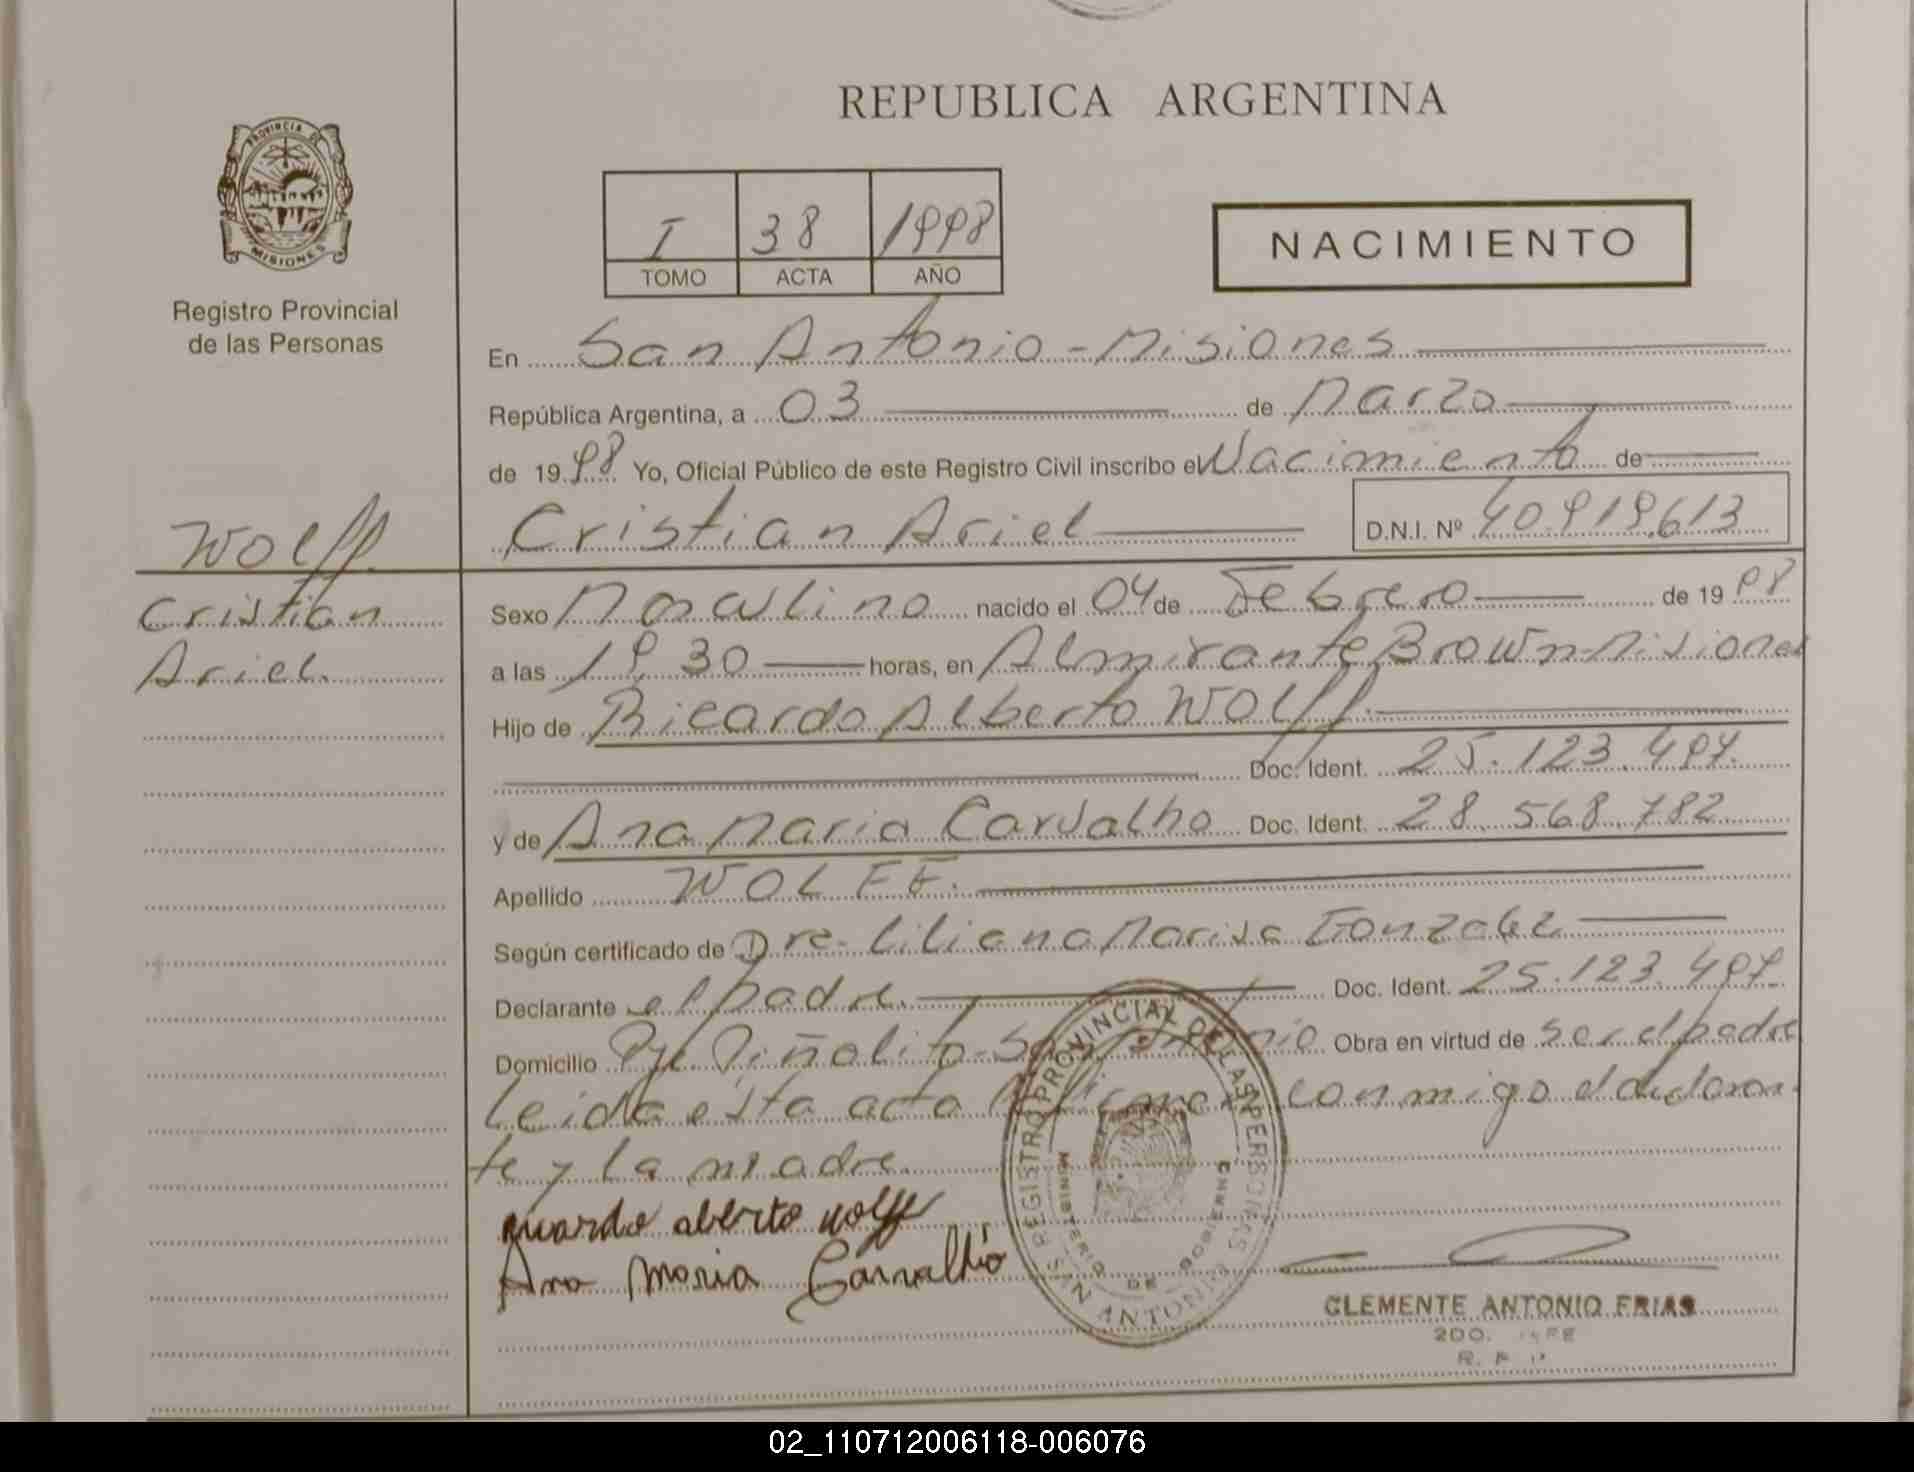 REPUBLICA ARGENTINA
PROVINCIA DE
MISIONES
Registro Provincial
de las Personas
I 38 1998
TOMO ACTA AÑO
NACIMIENTO
En San Antonio - Misiones
República Argentina, a 03 de Marzo
de 1998 Yo, Oficial Público de este Registro Civil inscribo el Nacimiento de
Cristian Ariel D.N.I. Nº 40.919.613
Wolff
Cristian
Ariel
Sexo Masculino nacido el 04 de Febrero de 1998
a las 19,30 horas, en Almirante Brown-Misiones
Hijo de Ricardo Alberto Wolff
Doc. Ident. 25.123.497.
y de Ana Maria Carvalho Doc. Ident. 28.568.782
Apellido WOLFF.
Según certificado de Dra. Liliana Marisa Gonzalez
Declarante el padre. Doc. Ident. 25.123.497
Domicilio Pje Piñalito-San Antonio Obra en virtud de ser el padre
Leida esta acta firman conmigo el declaran-
te y la madre.
ricardo alberto wolff
Ana Maria Carvalho
REGISTRO PROVINCIAL DE LAS PERSONAS
MINISTERIO DE GOBIERNO
SAN ANTONIO
CLEMENTE ANTONIO FRIAS
2DO. JEFE
R. P.
02_110712006118-006076